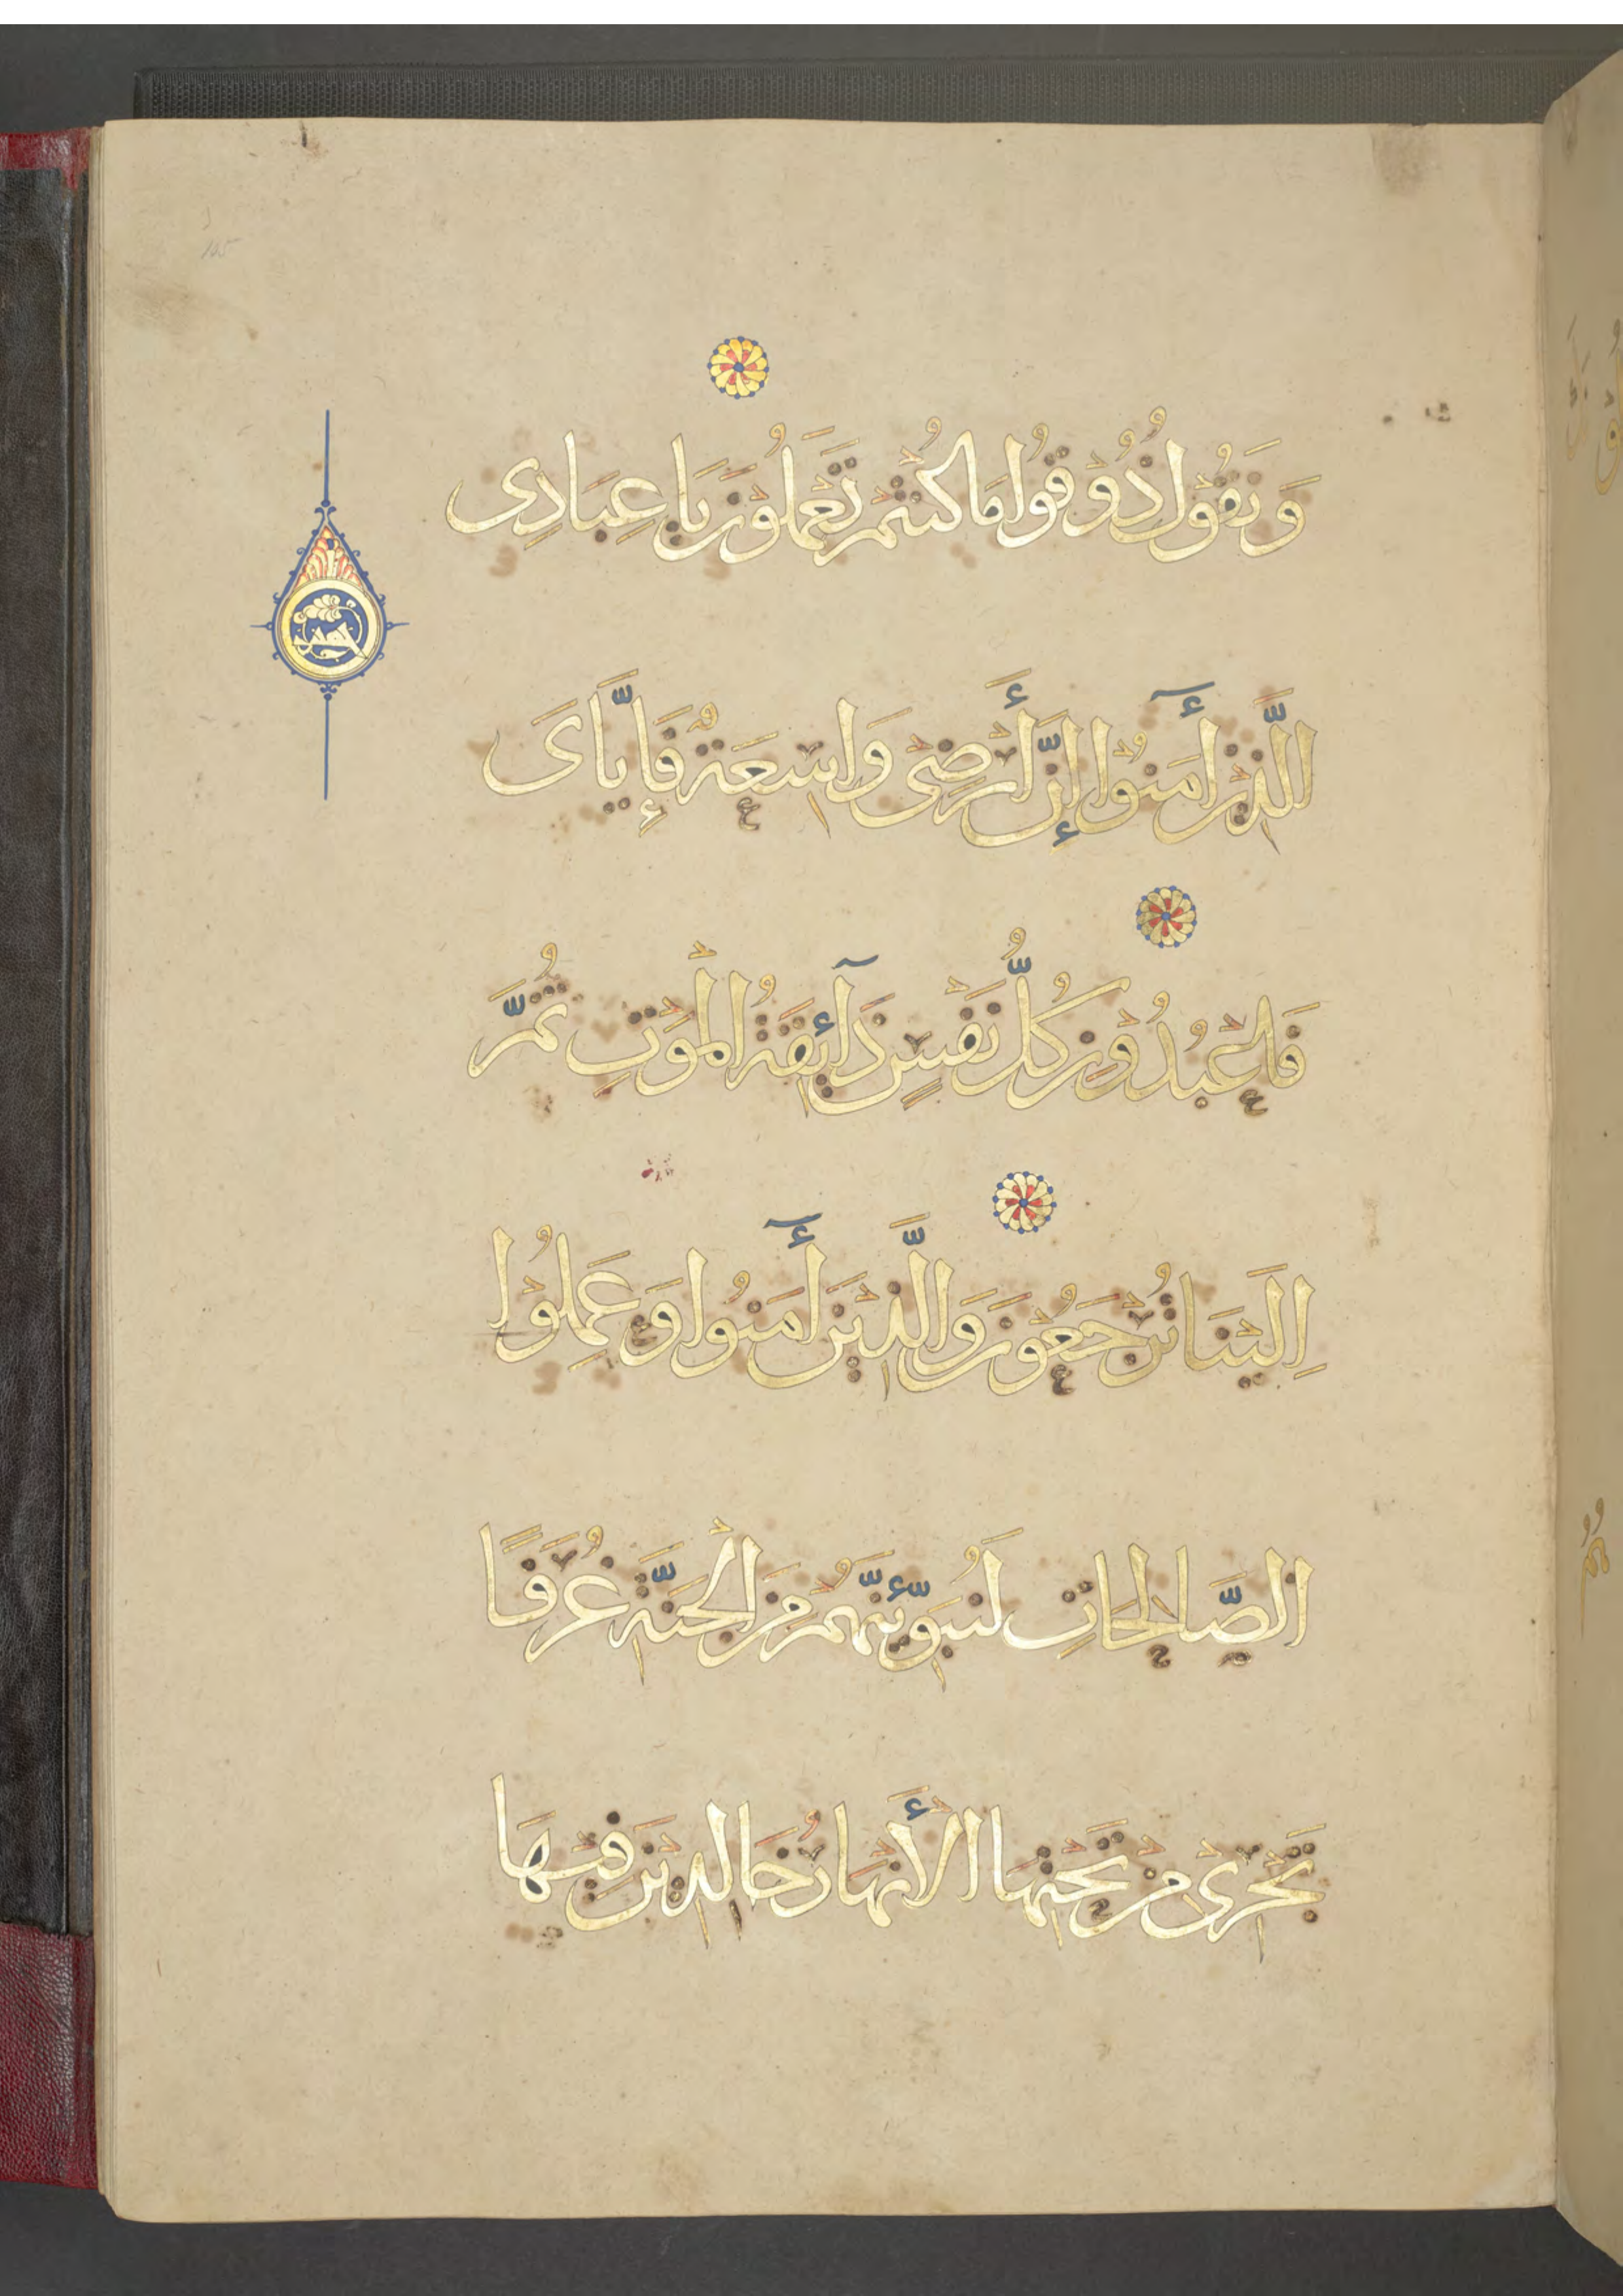 وَيَقُولُ ذُوقُوا مَا كُنْتُمْ تَعْمَلُونَ يَا عِبَادِى
الَّذِينَ أٓمَنُوا إِنَّ أَرْضِى وَاسِعَةٌ فَإِيَّاىَ
فَاعْبُدُونِ كُلُّ نَفْسٍ ذَآئِقَةُ الْمَوْتِ ثُمَّ
اِلَيْنَا تُرْجَعُونَ وَالَّذِينَ أٓمَنُوا وَعَمِلُوا
الصَّالِحَاتِ لَنُبَوِّئَنَّهُمْ مِنَ الْجَنَّةِ غُرَفًا
تَجْرِى مِنْ تَحْتِهَا الْأَنْهَارُ خَالِدِينَ فِيهَا